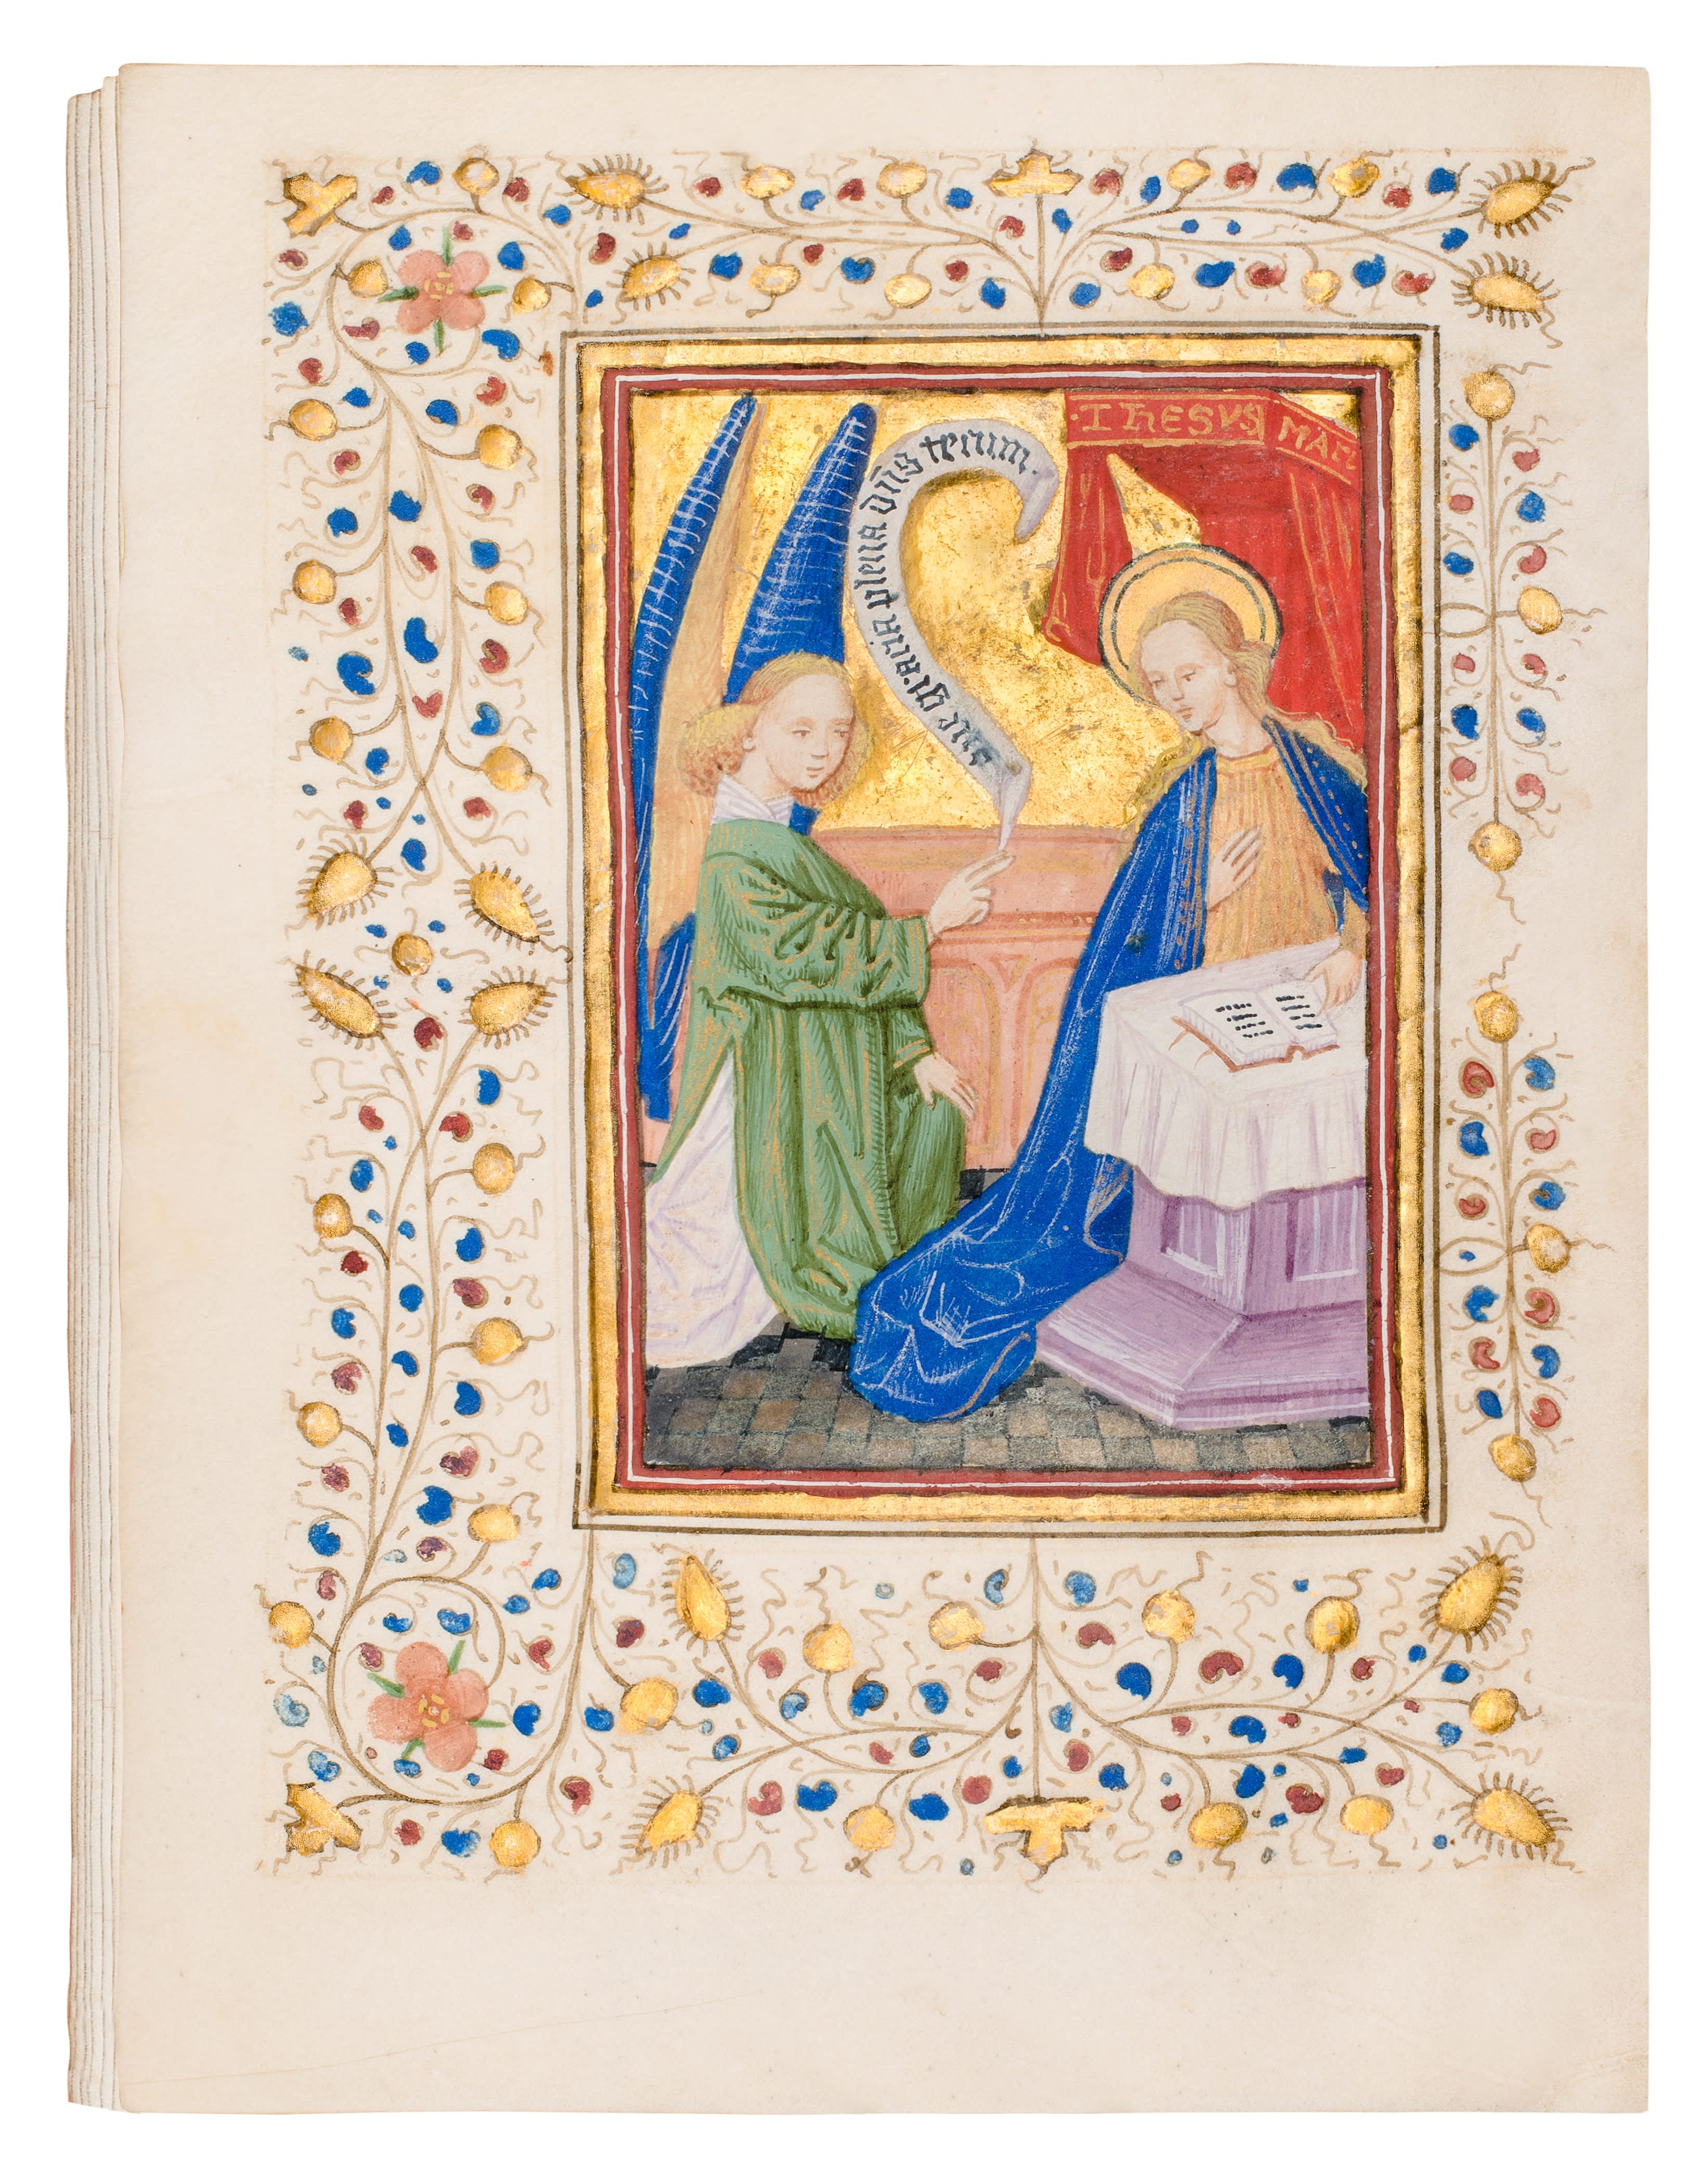 aue gracia plena dn̄s tecum.
·IHESVS MAR